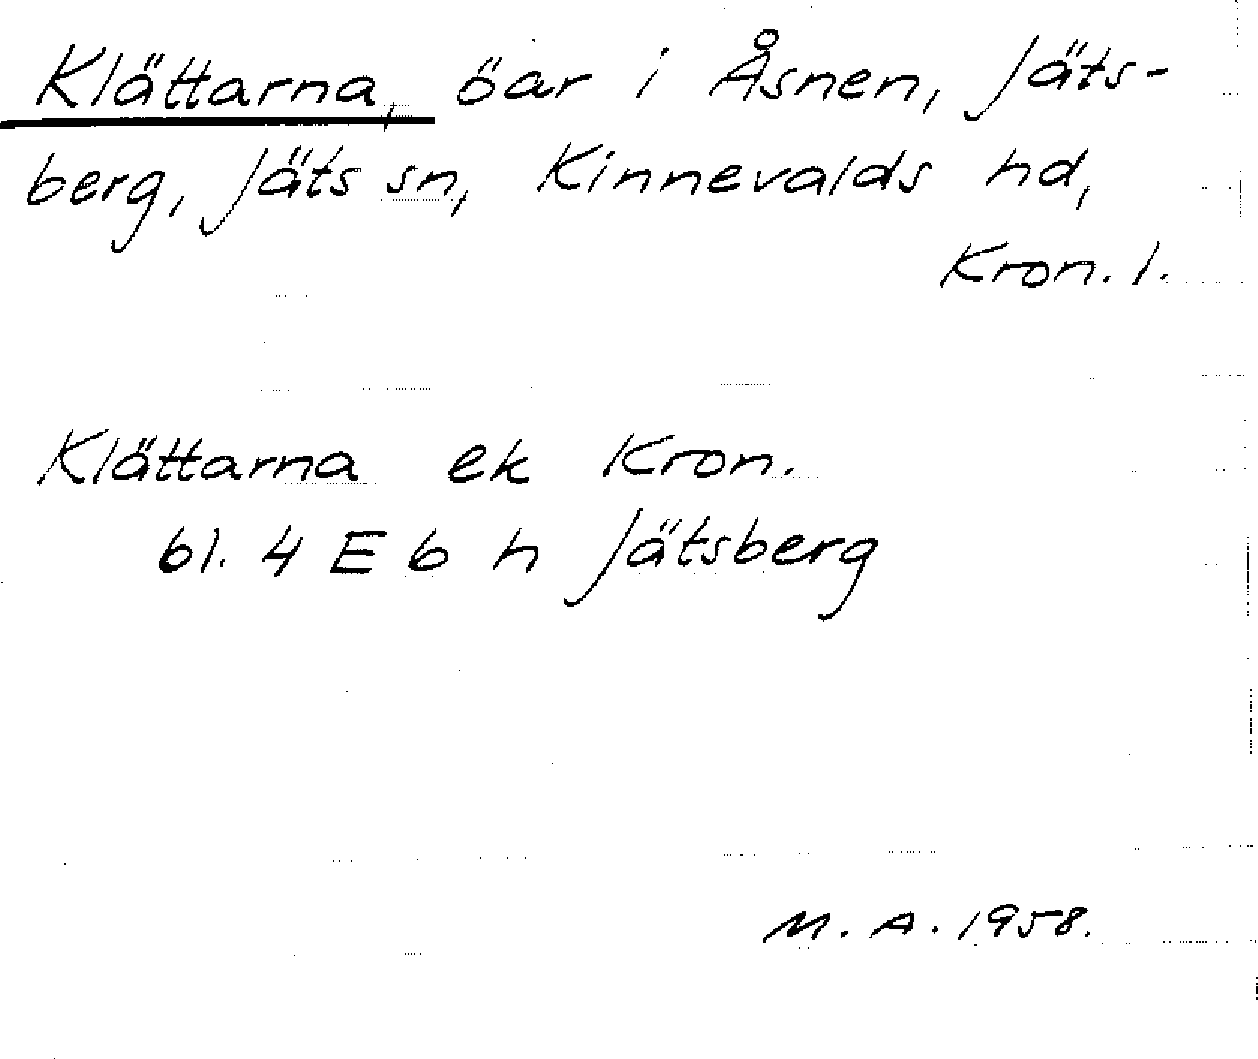 Klättarna, öar i Åsnen, Jäts-
berg, Jäts sn, Kinnevalds hd,
Kron. l.
Klättarna ek Kron.
bl. 4 E 6 h Jätsberg
M. A. 1958.